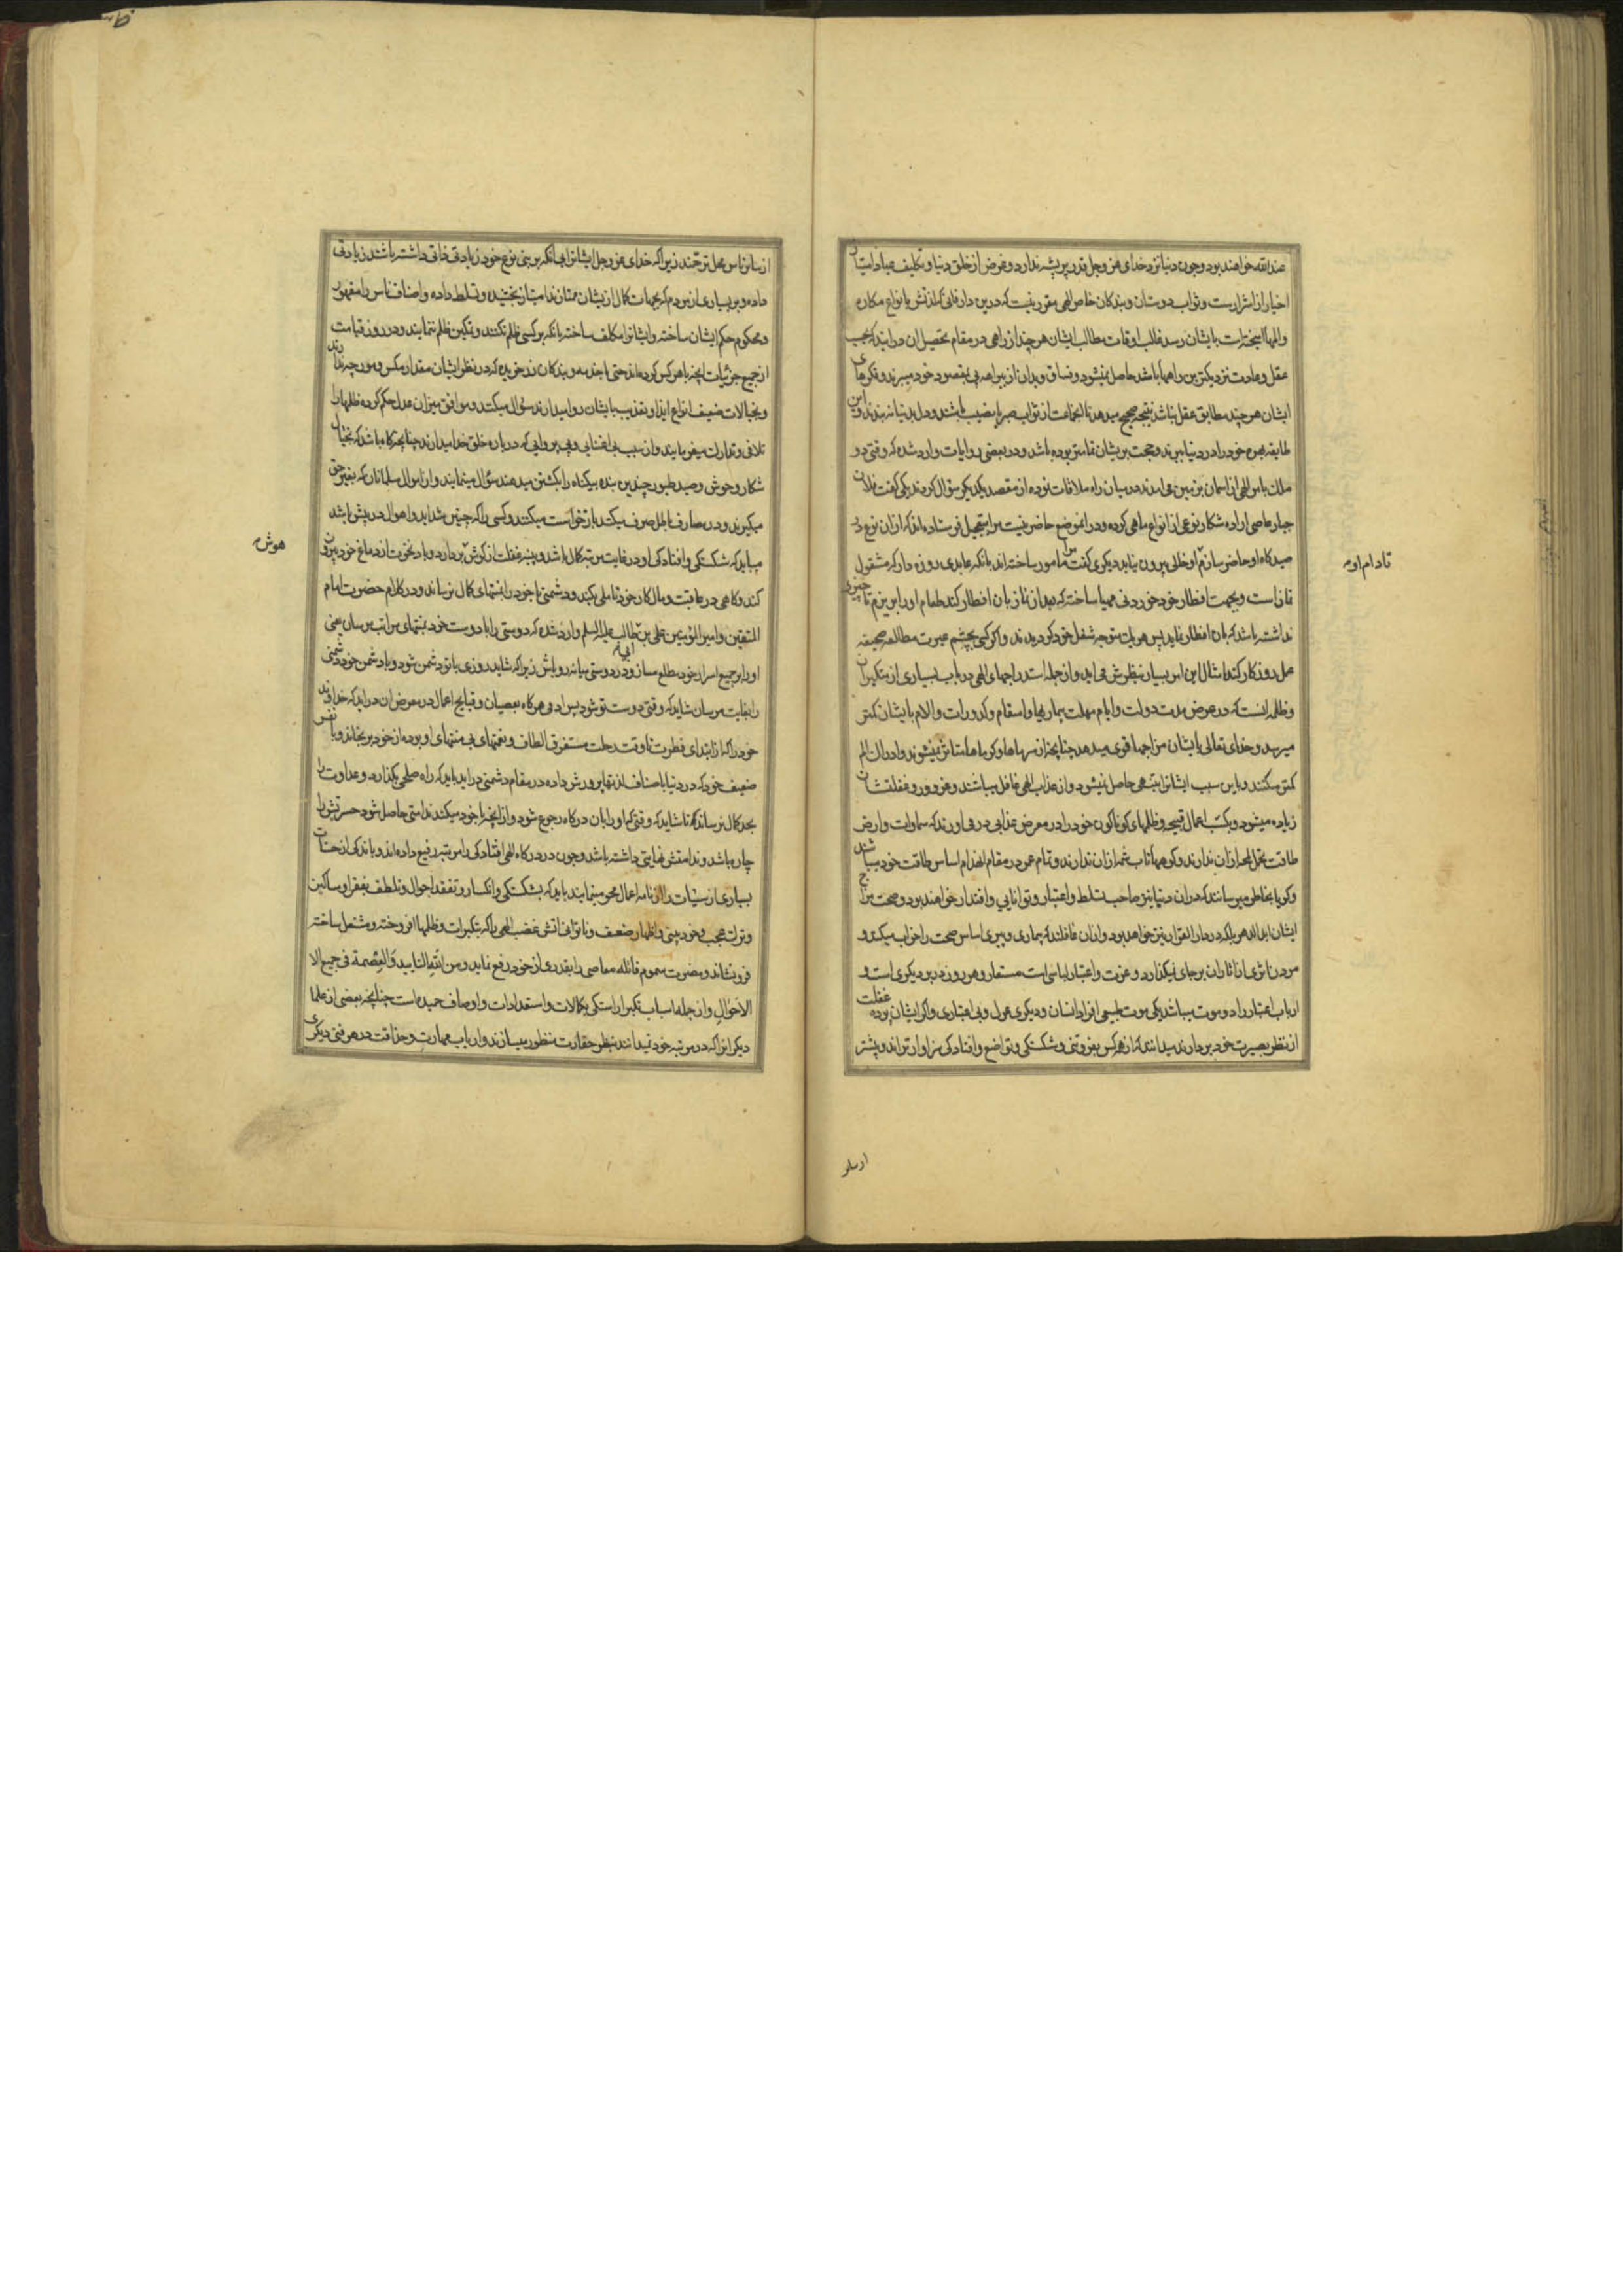 عند الله خواهند بود و چون دنیا نزد خدای عز و جل قدر پر پشه ندارد و غرض از خلق دنیا و تکلیف عباد امتیاز
اخیار از اشرارست و ثواب دوستان و بندکان خاص الهی مقرر نیست که درین دار فانی که لذتش بانواع مکاره
و المها آمیخته است بایشان رسد غالب اوقات مطالب ایشان هر چند از راهی در مقام تحصیل ان درایند که بحسب
عقل و عادت نزدیکترین راهها باشد حاصل نمیشود و فساق و بدان از بیراهه پی بمقصود خود میبرند و فکرهای
ایشان هر چند مطابق عقل نباشد نتیجه صحیح میدهد تا انجماعت از ثواب صبر بی نصیب نباشند و دل بدنیا نه بندند و این
طایفه بهره خود را در دنیا ببرند و حجت بر ایشان تمامتر بوده باشد و در بعضی روایات وارد شده که وقتی دو
ملک بامر الهی از اسمان بزمین می امدند در میان راه ملاقات نموده از مقصد یکدیکر سؤال کردند یکی کفت فلان
جبار عاصی اراده شکار نوعی از انواع ماهی کرده و در انموضع حاضر نیست مرا بتعجیل فرستاده اند که ازان نوع در
صیدکاه او حاضر سازم تا دام او خالی بیرون نیاید دیکری کفت مرا مامور ساخته اند بانکه عابدی روزه دار که مشغول
نماز است و بجهت افطار خود خوردنی مهیا ساخته که بعد از نماز بان افطار کند طعام او را بریزم تا چیزی
نداشته باشد که بان افطار نماید پس هر یک متوجه شغل خود کردیدند و اکر کسی بچشم عبرت مطالعه صحیفه
عمل روزکار کند امثال این امر بسیار بنظرش می اید و از جمله استدراجهای الهی در باب بسیاری از متکبران
و ظلمه انست که در عرض مدت دولت و ایام مهلت بیماریها و اسقام و کدورات و الام بایشان کمتر
میرسد و خدای تعالی بایشان مزاجهای قوی میدهد چنانچه از سرماها و کرماها متاثر نمیشوند و ادراک الم
کمتر میکنند و باین سبب ایشانرا تنبهی حاصل نمیشود و از عذاب الهی غافل میباشند و غرور و غفلتشان
زیاده میشود و بکسب اعمال قبیحه و ظلمهای کوناکون خود را در معرض عذابی در می اورند که سماوات و ارض
طاقت تحمل لمحه ازان ندارند و کوهها تاب شمه ازان ندارند و تمام عمر در مقام انهدام اساس طاقت خود میباشند
و کویا بخاطر میرسانند که دران دنیا نیز صاحب تسلط و اعتبار و توانایی و اقتدار خواهند بود و صحت مزاج
ایشان ابد الدهر بلکه در دار القرار نیز خواهد بود و ازان غافلند که بیماری و پیری اساس صحت را خراب میکند و
مردن اثری از اثار ان بر جای نمیکذارد و عزت و اعتبار لباسی است مستعار و هر روز در بر دیکری است و
ارباب اعتبار را دو موت میباشد یکی موت طبیعی افراد انسان و دیکری عزل و بی اعتباری و اکر ایشان پرده غفلت
از نظر بصیرت خود بردارند میدانند که از هر کس بفروتنی و شکستکی و تواضع و افتادکی سزاوارتراند و بیشتر
تا دام او
از سایر
از سایر ناس محل ترحمند زیرا که خدای عز و جل ایشانرا بی انکه بر بنی نوع خود زیادتی ذاتی داشته باشند زیادتی
داده و بر بسیاری از مردم که بجهات کمال از یشان ممتازند امتیاز بخشیده و تسلط داده و اصناف ناس را مقهور
و محکوم حکم ایشان ساخته و ایشانرا مکلف ساخته بانکه بر کسی ظلم نکنند و تمکین ظلم ننمایند و در روز قیامت
از جمیع جزئیات انچه با هر کس کرده اند حتی با خدمه و بندکان زر خریده که در نظر ایشان مقدار مکس و مورچه ندارند
و بخیالات ضعیف انواع ایذا و تعذیب بایشان روا میدارند سؤال میکنند و موافق میزان عدل حکم کرده ظلمها را
تلافی و تدارک میفرمایند و ان سبب بی اعتنایی و بی پروایی که در باره خلق خدا میدارند چنانچه کاه باشد که بخیال
شکار وحوش و صید طیور چندین بنده بیکناه را بکشتن میدهند سؤال مینمایند و از اموال مسلمانان که بغیر حق
میکیرند و در مصارف باطل صرف میکنند بازخواست میکنند و کسی را که چنین شداید و اهوال در پیش باشد
میباید که شکستکی و افتادکی او در غایت مرتبه کمال باشد و پنبه غفلت از کوش هوش بردارد و باد نخوت از دماغ خود بیرون
کند و کاهی در عاقبت و مال کار خود تاملی بکند و دشمنی با خود را بمنتهای کمال نرساند و در کلام حضرت امام
المتقین و امیر المؤمنین علی بن ابی طالب علیه السلم وارد شده که دوستی را با دوست خود بمنتهای مراتب مرسان یعنی
او را بر جمیع اسرار خود مطلع مساز و در دوستی میانه رو باش زیرا که شاید روزی با تو دشمن شود و با دشمن خود دشمنی
را بغایت مرسان شاید که وقتی دوست تو شود پس ادمی هر کاه بعصیان و قبایح اعمال در معرض ان دراید که خداوند
خود را که از ابتدای فطرت تا وقت رحلت مستغرق الطاف و نعمتهای بی منتهای او بوده از خود برنجاند و با نفس
ضعیف خود که در دنیا باصناف لذتها پرورش داده در مقام دشمنی دراید باید که راه صلحی بکذارد و عداوت را
بحد کمال نرساند که تا شاید که وقتی که او را بان درکاه رجوع شود و از انچه با خود میکند ندامتی حاصل شود حسرتش را
چاره باشد و ندامتش نهایتی داشته باشد و چون در درکاه الهی افتادکی را مرتبه رفیع داده اند و باندکی از حسنات
بسیاری از سیئات را از نامه اعمال محو مینمایند باید که بشکستکی و انکسار و تفقد احوال و تلطف بفقرا و مساکین
و ترک عجب و خودبینی و اظهار ضعف و ناتوانی اتش غضب الهی را که بتکبرات و ظلمها افروخته و مشتعل ساخته
فرو نشاند و مضرت سموم قاتله معاصی را بقدری از خود رفع نماید و من الله التایید و العصمة فی جمیع الا
الاحوال و از جمله اسباب تکبر اراستکی بکمالات و استعدادات و اوصاف حمیده است چنانچه بعضی از علما
دیکرانرا که در مرتبه خود نمیدانند بنظر حقارت منظور میسازند و ارباب مهارت و حذاقت در هر فنی دیکری
هوش